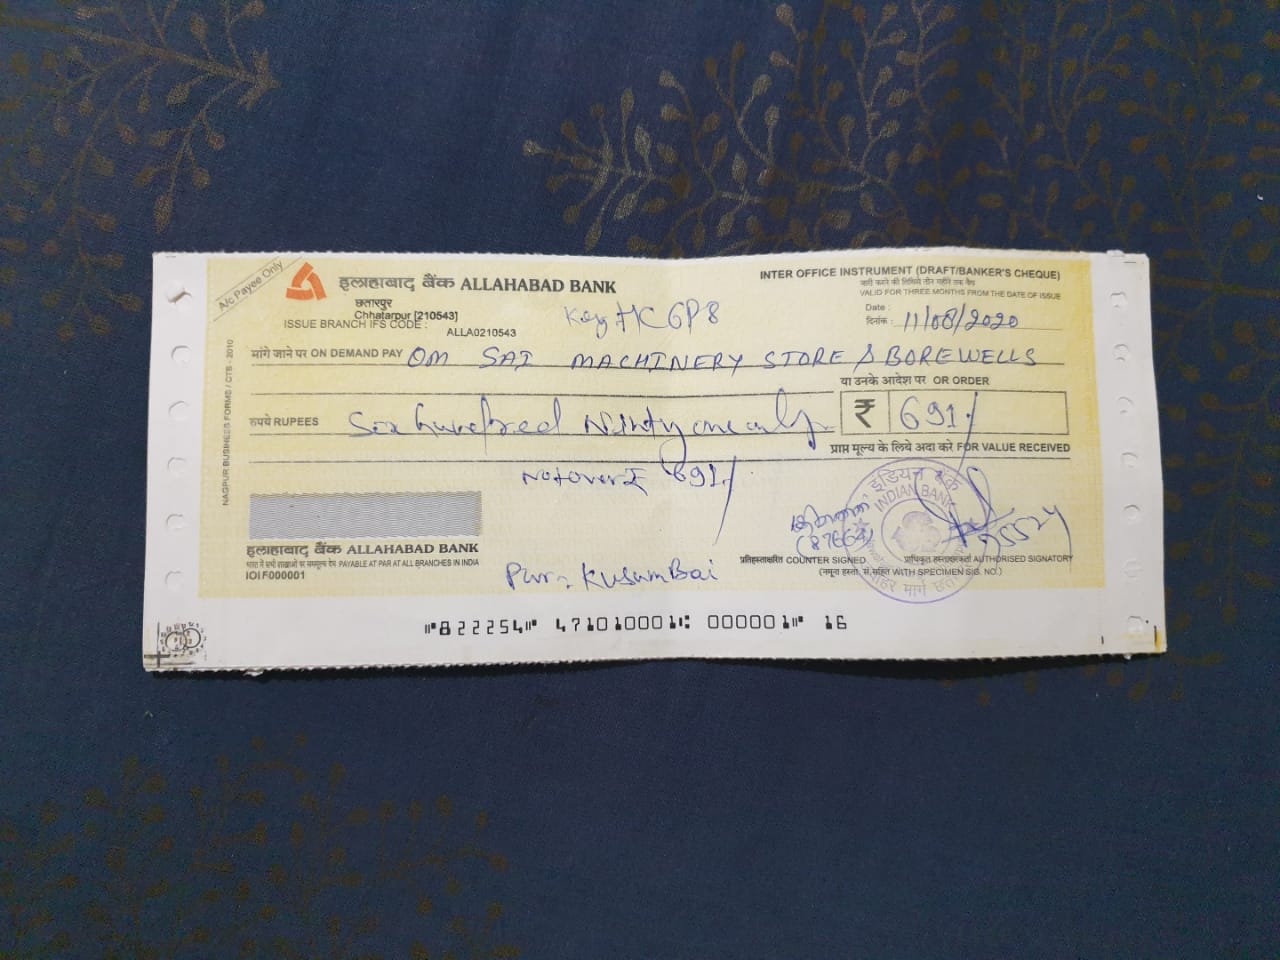 A/c Payee Only
इलाहाबाद बैंक ALLAHABAD BANK
छतारपुर
Chhatarpur [210543]
ISSUE BRANCH IFS CODE :
ALLA0210543
INTER OFFICE INSTRUMENT (DRAFT/BANKER'S CHEQUE)
जारी करने की तिथिसे तीन महीने तक वैध
VALID FOR THREE MONTHS FROM THE DATE OF ISSUE
Date :
दिनांक : 11/08/2020
मांगे जाने पर ON DEMAND PAY OM SAI MACHINERY STORE & BOREWELLS
या उनके आदेश पर OR ORDER
रुपये RUPEES Six hundred Ninty one only
₹ 691/
प्राप्त मूल्य के लिये अदा करे FOR VALUE RECEIVED
Not over ₹ 691/
इंडियन बैंक
INDIAN BANK
(87664)
इलाहाबाद बैंक ALLAHABAD BANK
भारत में सभी शाखाओं पर सममूल्य देय PAYABLE AT PAR AT ALL BRANCHES IN INDIA
IOIF000001
Pur: Kusum Bai
प्रतिहस्ताक्षरित COUNTER SIGNED
प्राधिकृत हस्ताक्षरकर्ता AUTHORISED SIGNATORY
WITH SPECIMEN SIG. NO.)
NAGPUR BUSINESS FORMS / CTS - 2010
⑈822254⑈ 471010001⑆ 000001⑈ 16